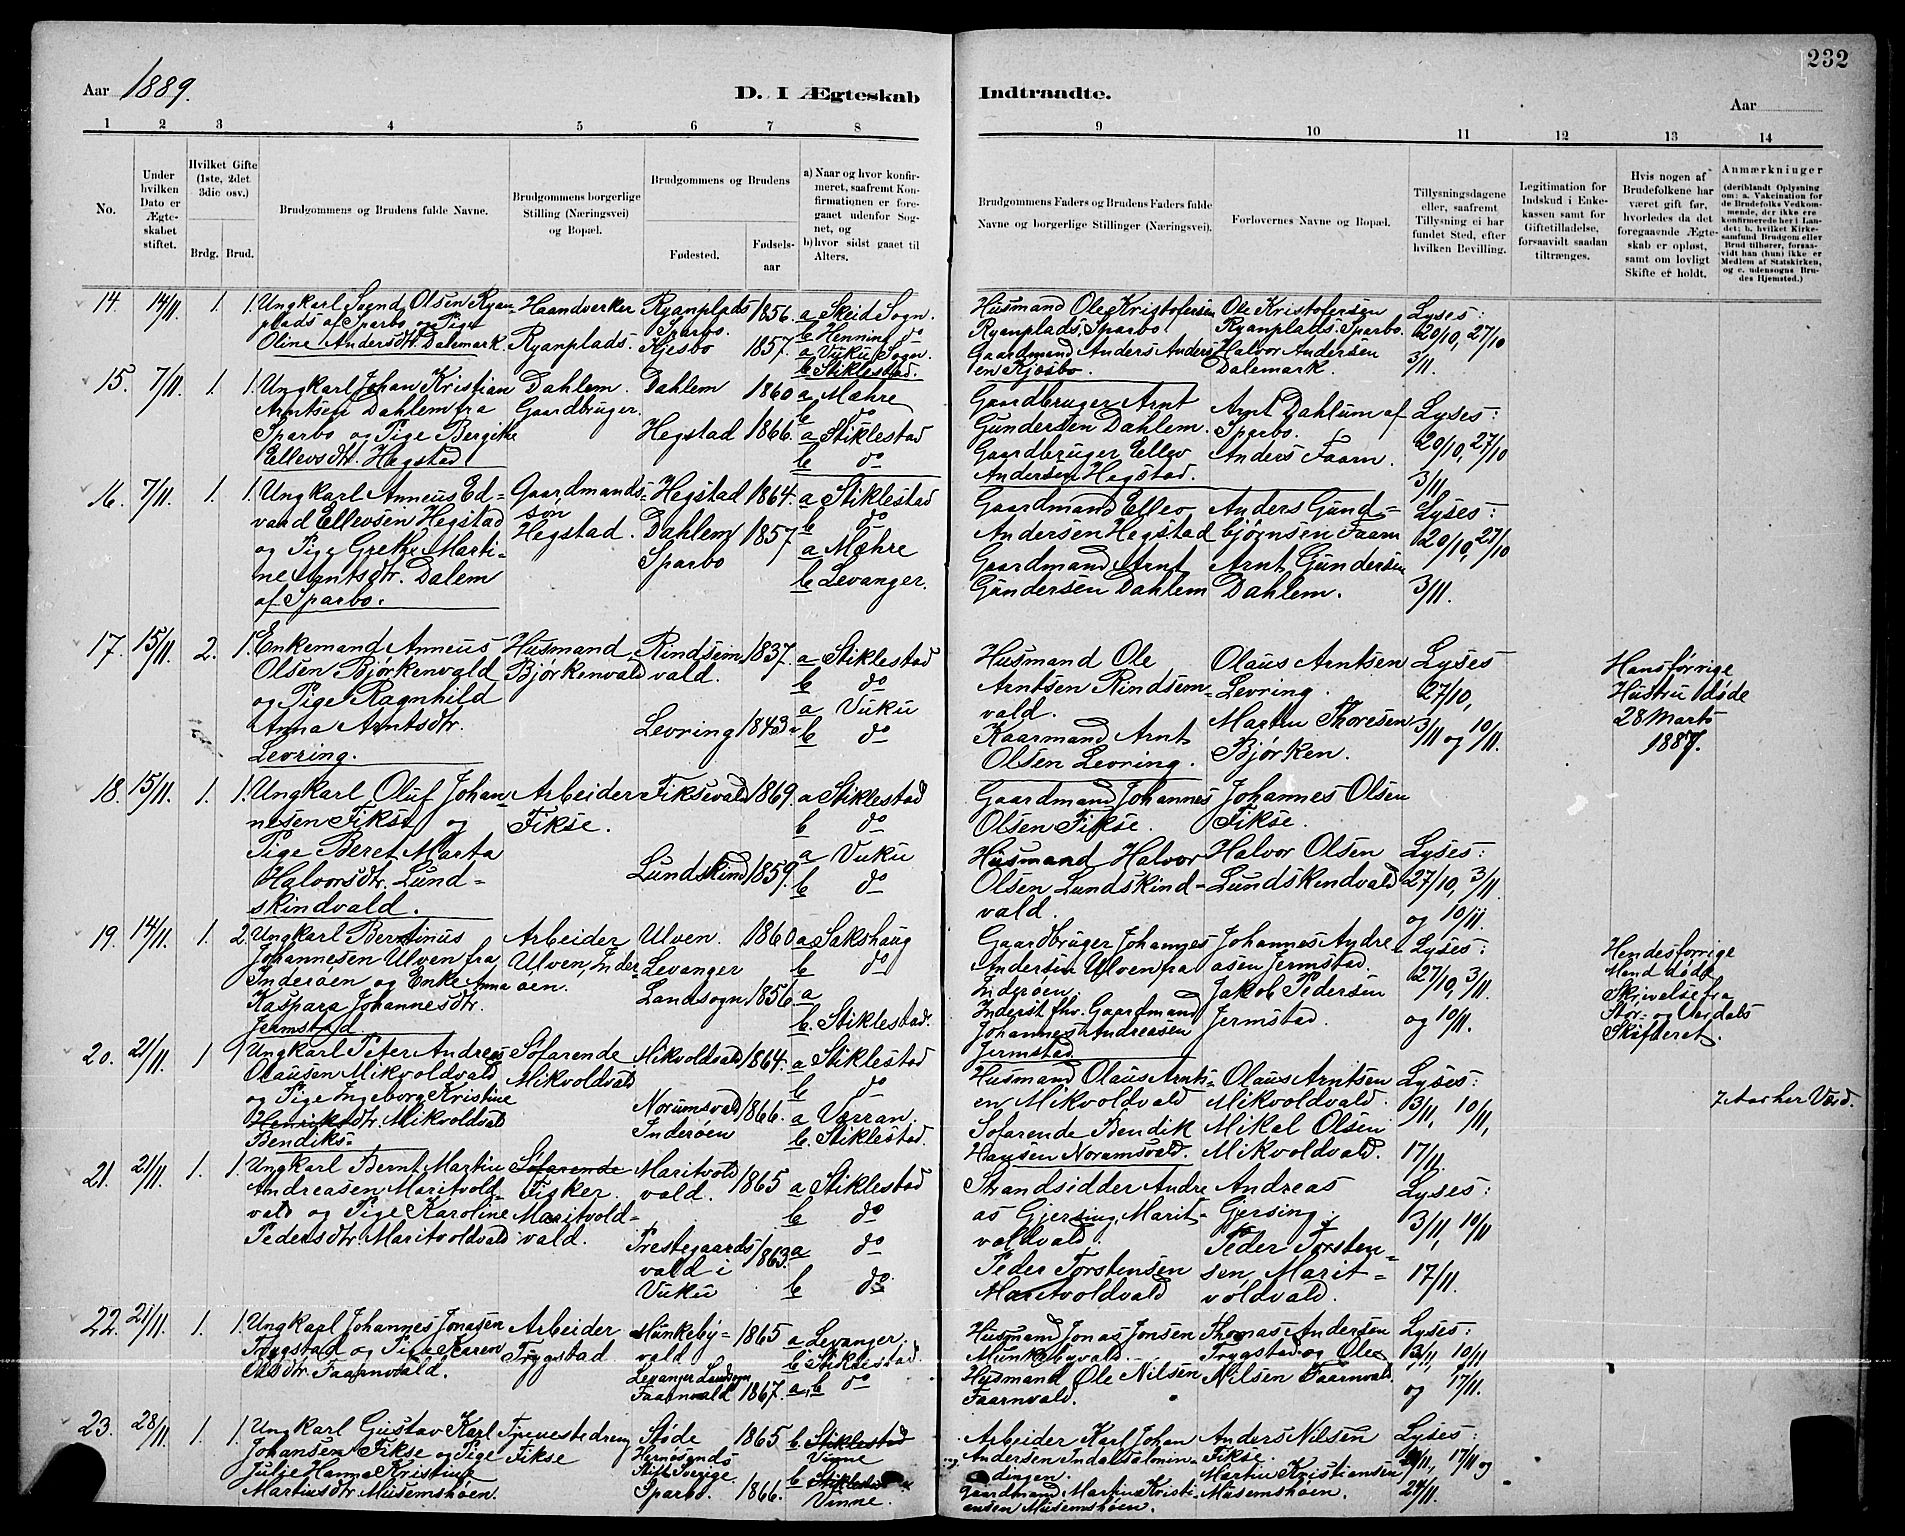 232
Aar 1889.
D. I Ægteskab Indtraadte.
Aar
1 2 3 4 5 6 7 8 9 10 11 12 13 14
No.
Under hvilken Dato er Ægteskabet stiftet.
Hvilket Gifte (1ste, 2det 3die osv.)
Brdg. Brud.
Brudgommens og Brudens fulde Navne.
Brudgommens borgerlige Stilling (Næringsvei) og Bopæl.
Brudgommens og Brudens
Fødested.
Fødselsaar
a) Naar og hvor konfirmeret, saafremt Konfirmationen er foregaaet udenfor Sognet, og
b) hvor sidst gaaet til Alters.
Brudgommens Faders og Brudens Faders fulde Navne og borgerlige Stillinger (Næringsvei).
Forlovernes Navne og Bopæl.
Tillysningsdagene eller, saafremt Tillysning ei har fundet Sted, efter hvilken Bevilling.
Legitimation for Indskud i Enkekassen samt for Giftetilladelse, forsaavidt saadan tiltrænges.
Hvis nogen af Brudefolkene har været gift før, hvorledes da det foregaaende Ægteskab er opløst, samt om lovligt Skifte er holdt.
Anmærkninger
(deriblandt Oplysning om: a. Vakcination for de Brudefolks Vedkommende, der ikke ere konfirmerede her i Landet; b. hvilket Kirkesamfund Brudgom eller Brud tilhører, forsaavidt han (hun) ikke er Medlem af Statskirken, og c. udensogns Brudes Hjemsted.)
14. 14/11 1. 1. Ungkarl Svend Olsen Ryanplads af Sparbo og Pige Oline Andersdtr. Dalemark.
Haandverker Ryanplads.
Ryanplads Sparbo. 1856. a Skeid Sogn. b Henning do
Kjesbo 1857. a Vuku Sogn. b Stiklestad.
Husmand Ole Kristofersen Ryanplads, Sparbo
Gaardmand Anders Andersen Kjøsbo.
Ole Kristofersen Ryanplads. Sparbo.
Halvor Andersen Dalemark.
Lyses: 20/10, 27/10 3/11.
15. 7/11. 1. 1. Ungkarl Johan Kristian Arntsen Dahlem fra Sparbo og Pige Bergitte Ellevsdtr. Hegstad
Dahlem. Gaardbruger.
Dahlem 1860 a Mæhre b do
Hegstad 1866. a Stiklestad b do
Gaardbruger Arnt Gundersen Dahlem.
Gaardbruger Ellev Andersen Hegstad.
Arnt Dahlum af Sparbo.
Anders Faarn.
Lyses: 20/10, 27/10 3/11
16. 7/11. 1. 1. Ungkarl Anneus Edvard Ellevsen Hegstad og Pige Grethe Martine Arntsdtr. Dalem af Sparbo.
Gaardmandssøn Hegstad.
Hegstad 1864. a Stiklestad b do
Dahlem Sparbo 1857 a Mæhre b Levanger.
Gaardmand Ellev Andersen Hegstad
Gaardmand Arnt Gundersen Dahlem
Anders Gundbjørnsen Faarn
Arnt Gundersen Dahlem.
Lyses: 20/10, 27/10 3/11.
17. 15/11. 2. 1. Enkemand Anneus Olsen Bjørkenvald og Pige Ragnhild Anna Arntsdtr. Levring.
Husmand Bjørkenvald
Rindsemvald. 1837. a Stiklestad b do
Levring 1843 a Vuku b do
Husmand Ole Arntsen Rindsemvald.
Kaarmand Arnt Olsen Levring.
Olaus Arntsen Levring.
Martin Thoresen Bjørken.
Lyses 27/10, 3/11 og 10/11.
Hans forrige Hustru døde 28 Marts 1887.
18. 15/11. 1. 1. Ungkarl Oluf Johannesen Fikse og Pige Beret Marta Halvorsdtr. Lundskindvald.
Arbeider Fikse.
Fiksevald 1869. a Stiklestad b do
Lundskind 1859. a Vuku b do
Gaardmand Johannes Olsen Fikse.
Husmand Halvor Olsen Lundskindvald.
Johannes Olsen Fikse.
Halvor Olsen Lundskindvald
Lyses: 27/10, 3/11. og 10/11.
19. 14/11. 1. 2. Ungkarl Bertinus Johannesen Ulven fra Inderøen og Enke Anna Kaspara Johannesdtr. Jermstad
Arbeider Ulven, Inderøen.
Ulven. 1860 a Sakshaug b do
Levanger Landsogn 1856 a b. Stiklestad.
Gaardbruger Johannes Andersen Ulven fra Inderøen.
Inderst fhv. Gaardmand Johannes Andreasen Jermstad
Johannes Andreasen Jermstad.
Jakob Pedersen Jermstad.
Lyses: 27/10, 3/11. og 10/11.
Hendes forrige Mand døde Skrivelse fra Stør- og Værdals Skifteret.
20. 21/11. 1 1 Ungkarl Peter Andreas Olausen Mikvoldvald og Pige Ingeborg Kristine Henriksdtr. Mikvoldvald Bendiks-
Søfarende Mikvoldvald
Mikvoldvald 1864. a Stiklestad b do
Norumsvald Inderøen 1866. a Værran. b. Stiklestad.
Husmand Olaus Arntsen Mikvoldvald
Søfarende Bendik Hansen Noramsvald.
Olaus Arntsen Mikvoldvald.
Mikal Olsen Mikvoldvald.
Lyses: 3/11, 10/11, 17/11.
7 Aar her Værd.
21. 21/11. 1. 1. Ungkarl Bernt Martin Andreasen Maritvoldvald og Pige Karoline Pedersdtr Maritvoldvald
Søfarende Fisker. Maritvoldvald.
Maritvoldvald. 1865 a Stiklestad b do
Prestegaardsvald i Vuku 1863. a do b do
Strandsidder Andreas Gjersing, Maritvoldvald.
Peder Torstensen Maritvoldvald
Andreas Gjersing.
Peder Torstensen Maritvoldvald.
Lyses: 3/11, 10/11 17/11.
22. 21/11. 1. 1. Ungkarl Johannes Jonasen Trygstad og Pige Karen Olsdtr. Faarnvald.
Arbeider Trygstad.
Munkebyvald Levanger Landsogn 1865 a Levanger. b Stiklestad.
Faarnvald 1867. a, b do
Husmand Jonas Jonsen Munkebyvald.
Husmand Ole Nilsen Faarnvald.
Thomas Andersen Trygstad og Ole Nilsen Faarnvald.
Lyses: 3/11, 10/11 og 17/11.
23. 28/11. 1. 1. Ungkarl Gustav Karl Johansen Fikse og Pige Julie Hanna Kristine Martinsdtr Musemshøen.
Tjenestedreng Fikse
Støde Hernøsands Stift Sverige. 1865 b. Stiklestad Vinne
Sparbo. 1866. b Stiklestad Vinne.
Arbeider Karl Johan Andersen Indalsalmindingen.
Gaardmand Martin Kristiansen Musemshøen.
Anders Nilsen Fikse.
Martin Kristiansen Musemshøen.
Lyses: 17/11 og 24/11.